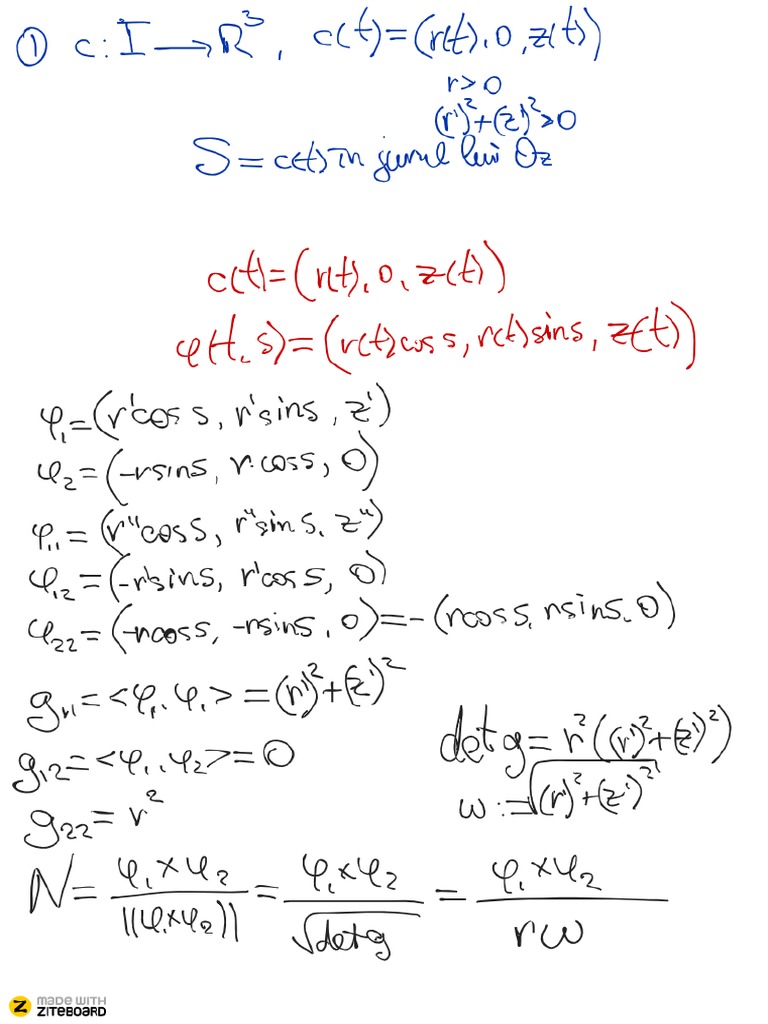 ① c: I → R³, c(t)=(r(t), 0, z(t))
r>0
(r')²+(z')²>0
S = c(t) în jurul lui Oz
c(t)=(r(t), 0, z(t))
φ(t, s)=(r(t)cos s, r(t)sin s, z(t))
φ₁=(r'cos s, r'sin s, z')
φ₂=(-r sin s, r·cos s, 0)
φ₁₁=(r''cos s, r''sin s, z'')
φ₁₂=(-r'sin s, r'cos s, 0)
φ₂₂=(-r cos s, -r sin s, 0)=-(r cos s, r sin s, 0)
g₁₁=<φ₁, φ₁>=(r')²+(z')²
g₁₂=<φ₁, φ₂>=0
g₂₂=r²
det g=r²((r')²+(z')²)
w:=√((r')²+(z')²)
N=(φ₁×φ₂)/||φ₁×φ₂||=(φ₁×φ₂)/√(det g)=(φ₁×φ₂)/(rw)
MADE WITH
ZITEBOARD